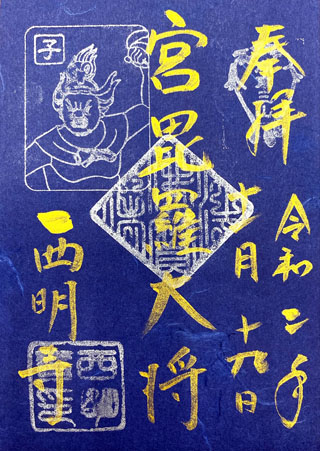 奉拝
令和二年
十一月
十九日
宮毘羅大将
子
西明寺